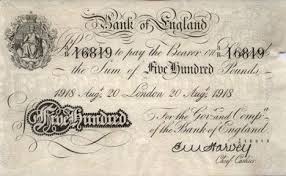 Bank of England
16819 to pay the Bearer on 16819
the Sum of Five Hundred Pounds
1918 Aug. 20 London 20 Aug. 1918
For the Gov. and Comp.a
of the Bank of England
Five Hundred.
Chief Cashier